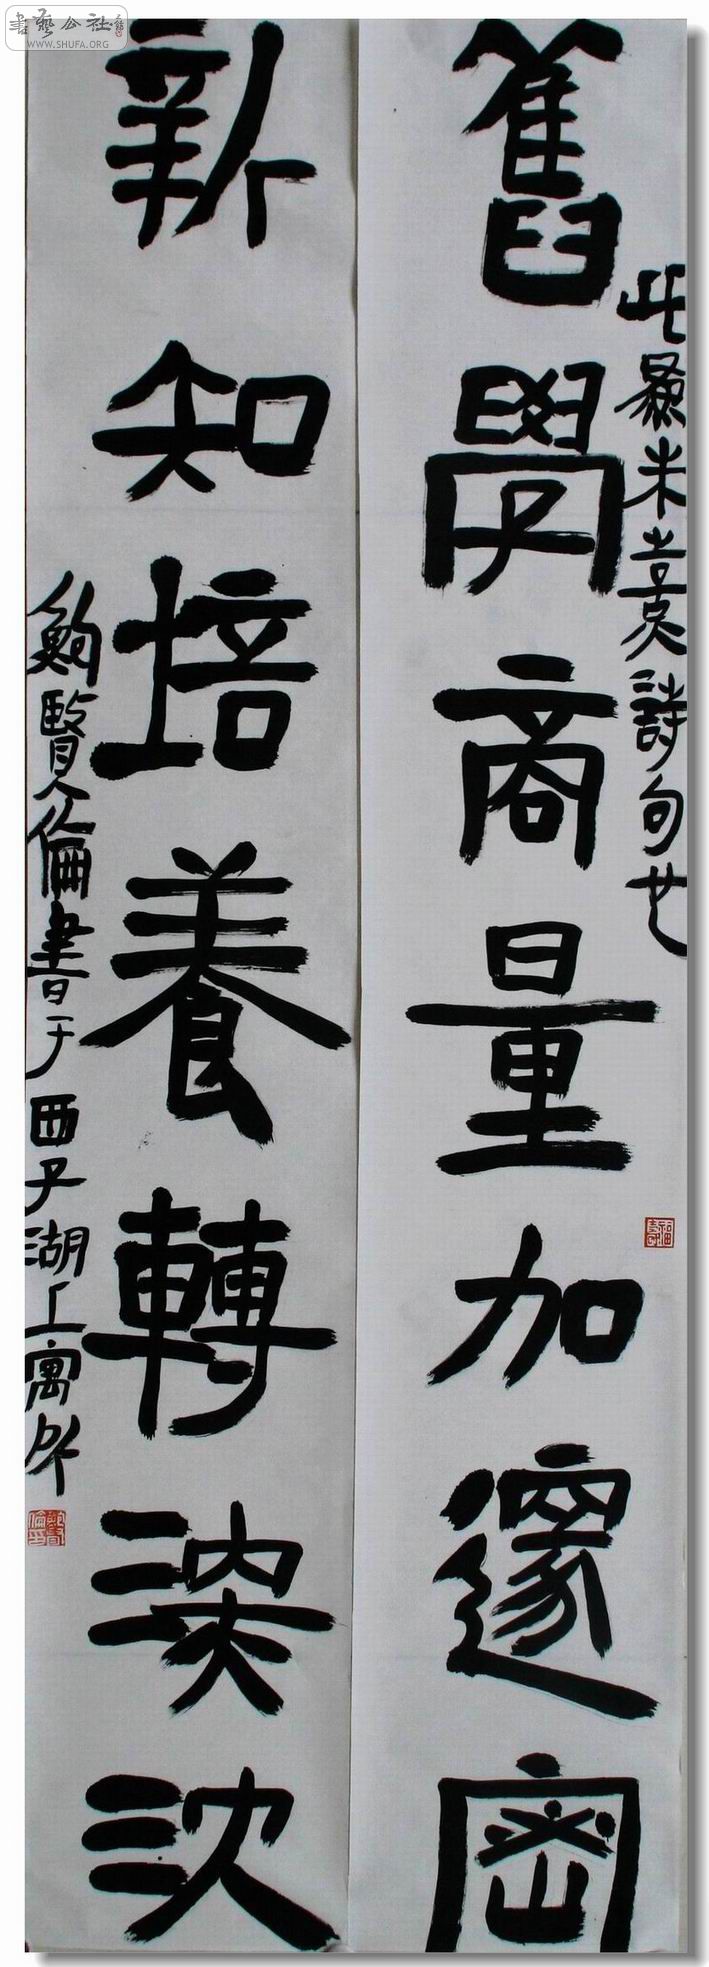 書藝公社
WWW.SHUFA.ORG
舊學商量加邃密
此朱熹詩句也
新知培養轉深沈
鮑賢倫書于西子湖上寓所